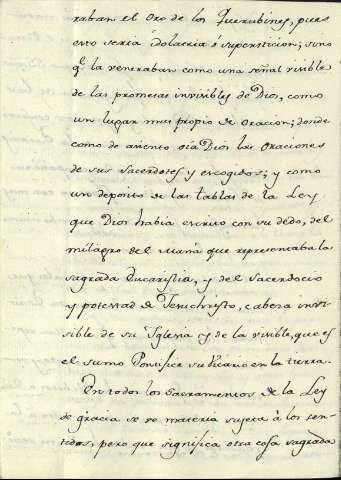 raban el oro de los Querubines, pues
esto seria idolatria ó supersticion; sino
q̃ la veneraban como una señal visible
de las promesas invisibles de Dios, como
un lugar mas propio de oracion; donde
como de asiento oia Dios las oraciones
de sus sacerdotes y escogidos; y como
un deposito de las tablas de la Ley
que Dios habia escrito con su dedo, del
milagro del Maná que representaba la
sagrada Eucaristia, y del Sacerdocio
y potestad de Jesuchristo, cabeza invi-
sible de su Yglesia y de la visible, que es
el sumo Pontifice su Vicario en la tierra.
En todos los Sacramentos de la Ley
de gracia se ve materia sujeta á los sen-
tidos, pero que significa otra cosa sagrada